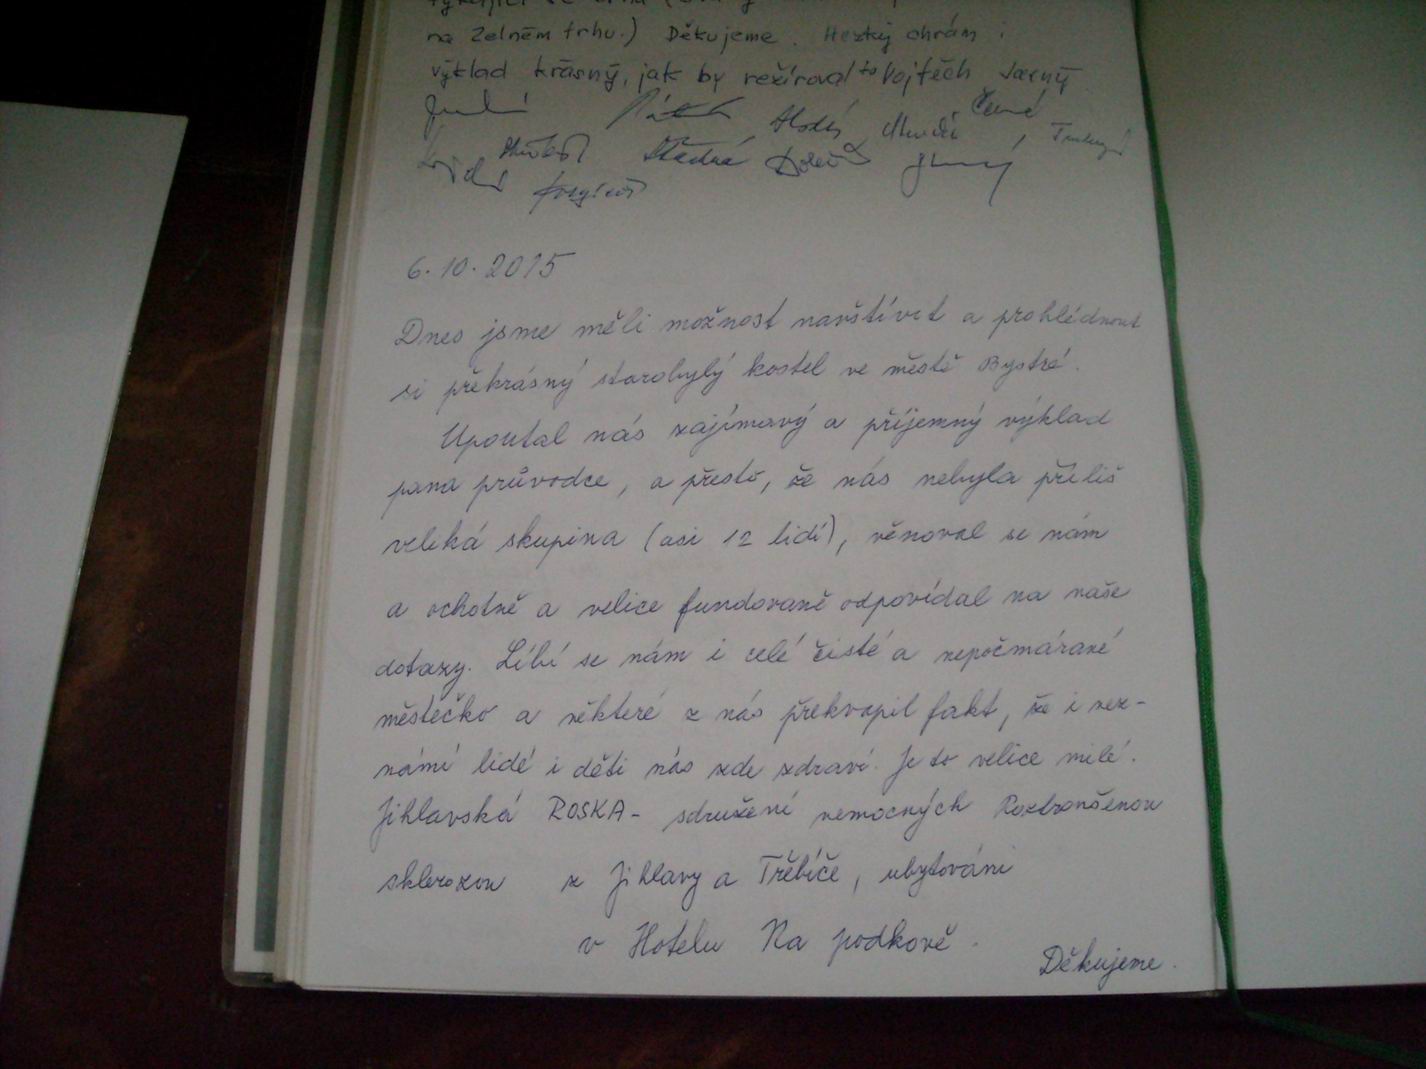 na Zelném trhu.) Děkujeme. Hezký chrám i
výklad krásný, jak by režíroval to Vojtěch Jasný
6.10.2015
Dnes jsme měli možnost navštívit a prohlédnout
si překrásný starobylý kostel ve městě Bystré.
Upoutal nás zajímavý a příjemný výklad
pana průvodce, a přesto, že nás nebyla příliš
veliká skupina (asi 12 lidí), věnoval se nám
a ochotně a velice fundovaně odpovídal na naše
dotazy. Líbí se nám i celé čisté a nepočmárané
městečko a některé z nás překvapil fakt, že i nez-
námí lidé i děti nás zde zdraví. Je to velice milé.
Jihlavská ROSKA - sdružení nemocných Roztroušenou
sklerozou z Jihlavy a Třebíče, ubytováni
v Hotelu Na podkově.
Děkujeme.